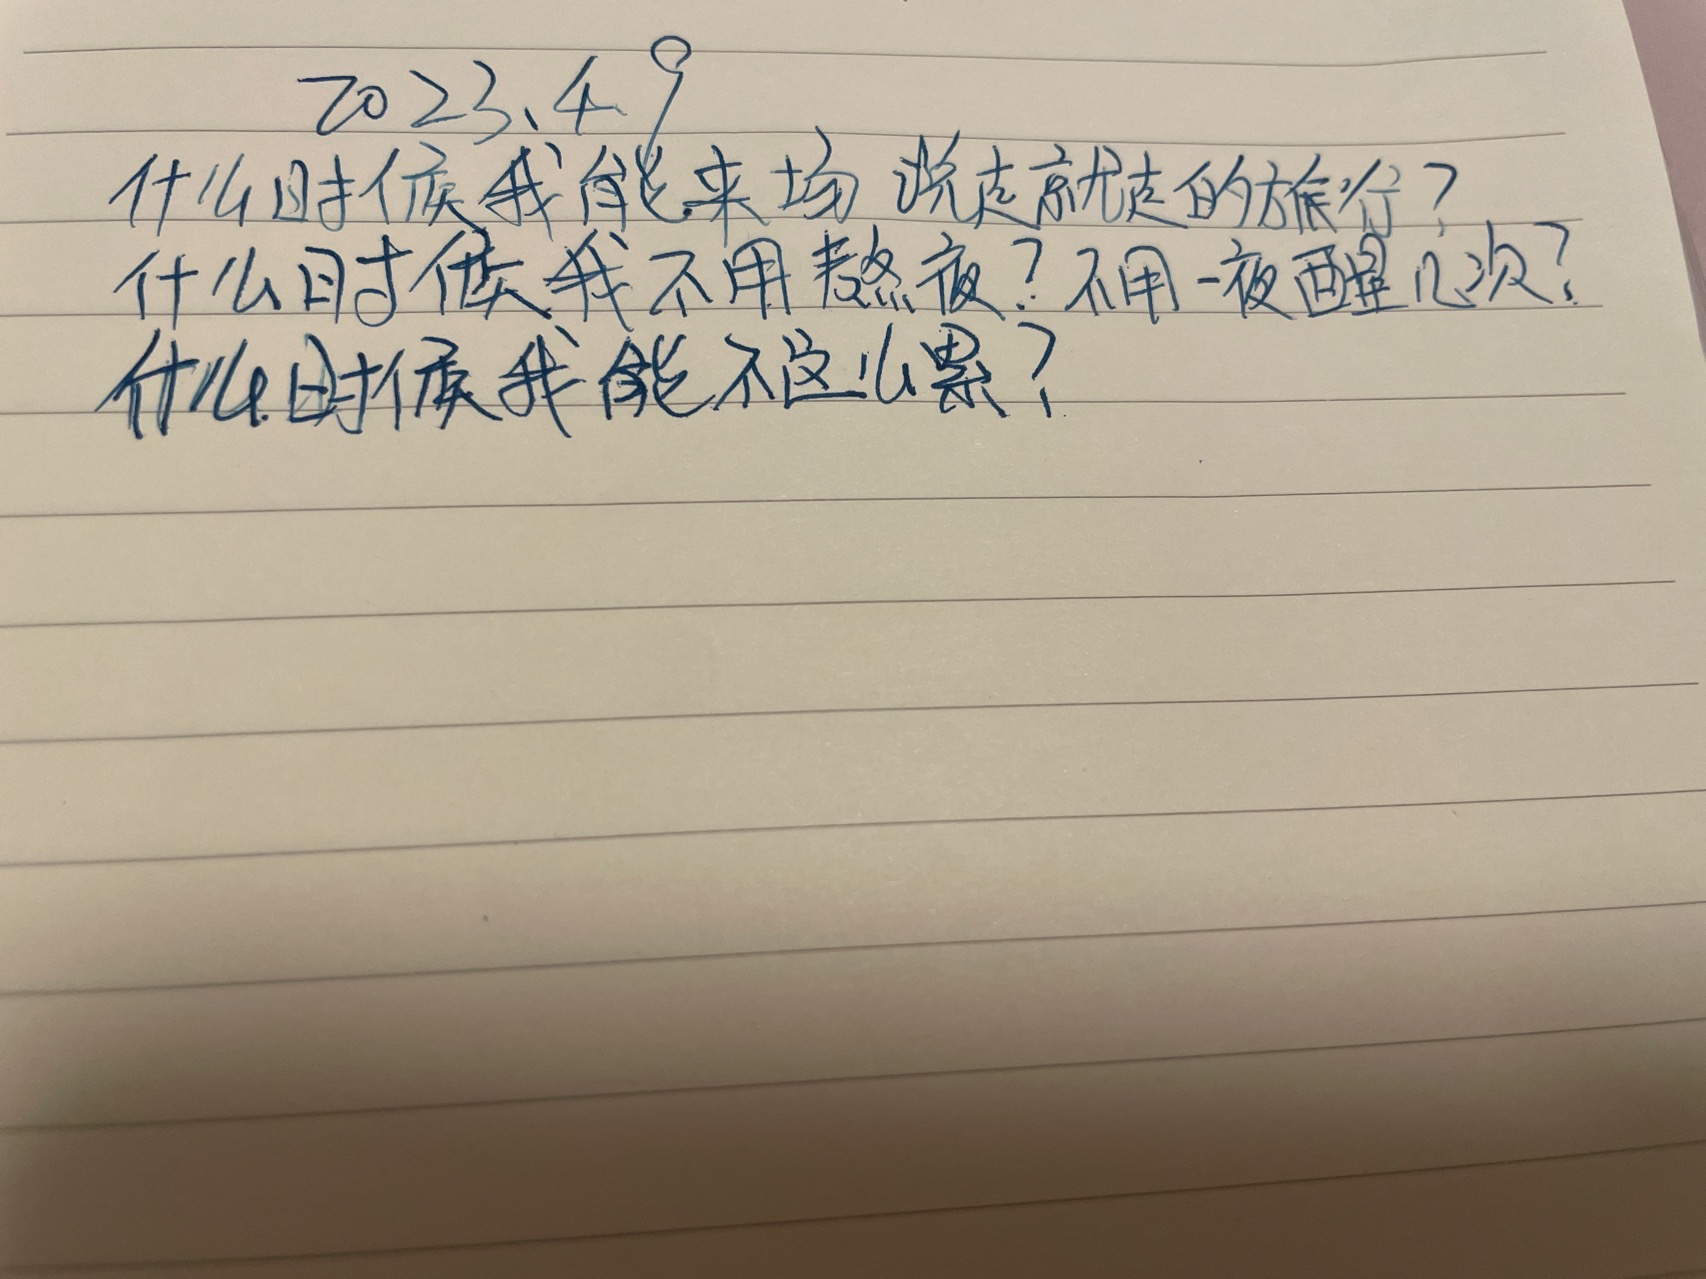 2023.4.9
什么时候我能来场说走就走的旅行?
什么时候我不用熬夜?不用一夜醒几次?
什么时候我能不这么累?